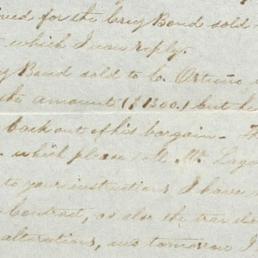 for the Craig Bond sold
which I can reply.
Bond sold to C. Ortuno
the amount ($1300.) but he
back out of his bargain. 
which please tell Mr. Lago
to your instructions I have
Contract, as also the
alterations, and tomorrow I